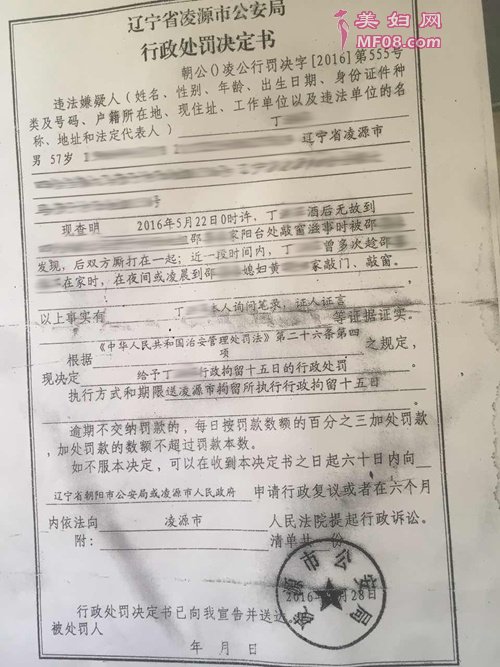 美妇网
MF08.com
辽宁省凌源市公安局
行政处罚决定书
朝公()凌公行罚决字[2016]第555号
违法嫌疑人(姓名、性别、年龄、出生日期、身份证件种
类及号码、户籍所在地、现住址、工作单位以及违法单位的名
称、地址和法定代表人) 丁
男 57岁 1 辽宁省凌源市
号
现查明 2016年5月22日0时许,丁 酒后无故到
邵 家阳台处敲窗滋事时被邵
发现,后双方厮打在一起;近一段时间内,丁 曾多次趁邵
在家时,在夜间或凌晨到邵 媳妇黄 家敲门、敲窗。
以上事实有 丁 本人询问笔录,证人证言 等证据证实。
根据 《中华人民共和国治安管理处罚法》第二十六条第四项 之规定,
现决定 给予丁 行政拘留十五日的行政处罚
执行方式和期限送凌源市拘留所执行行政拘留十五日
逾期不交纳罚款的,每日按罚款数额的百分之三加处罚款
,加处罚款的数额不超过罚款本数。
如不服本决定,可以在收到本决定书之日起六十日内向
辽宁省朝阳市公安局或凌源市人民政府 申请行政复议或者在六个月
内依法向 凌源市 人民法院提起行政诉讼。
附: 清单共 份
凌源市公安局
2016年 月28日
行政处罚决定书已向我宣告并送达。
被处罚人
年 月 日